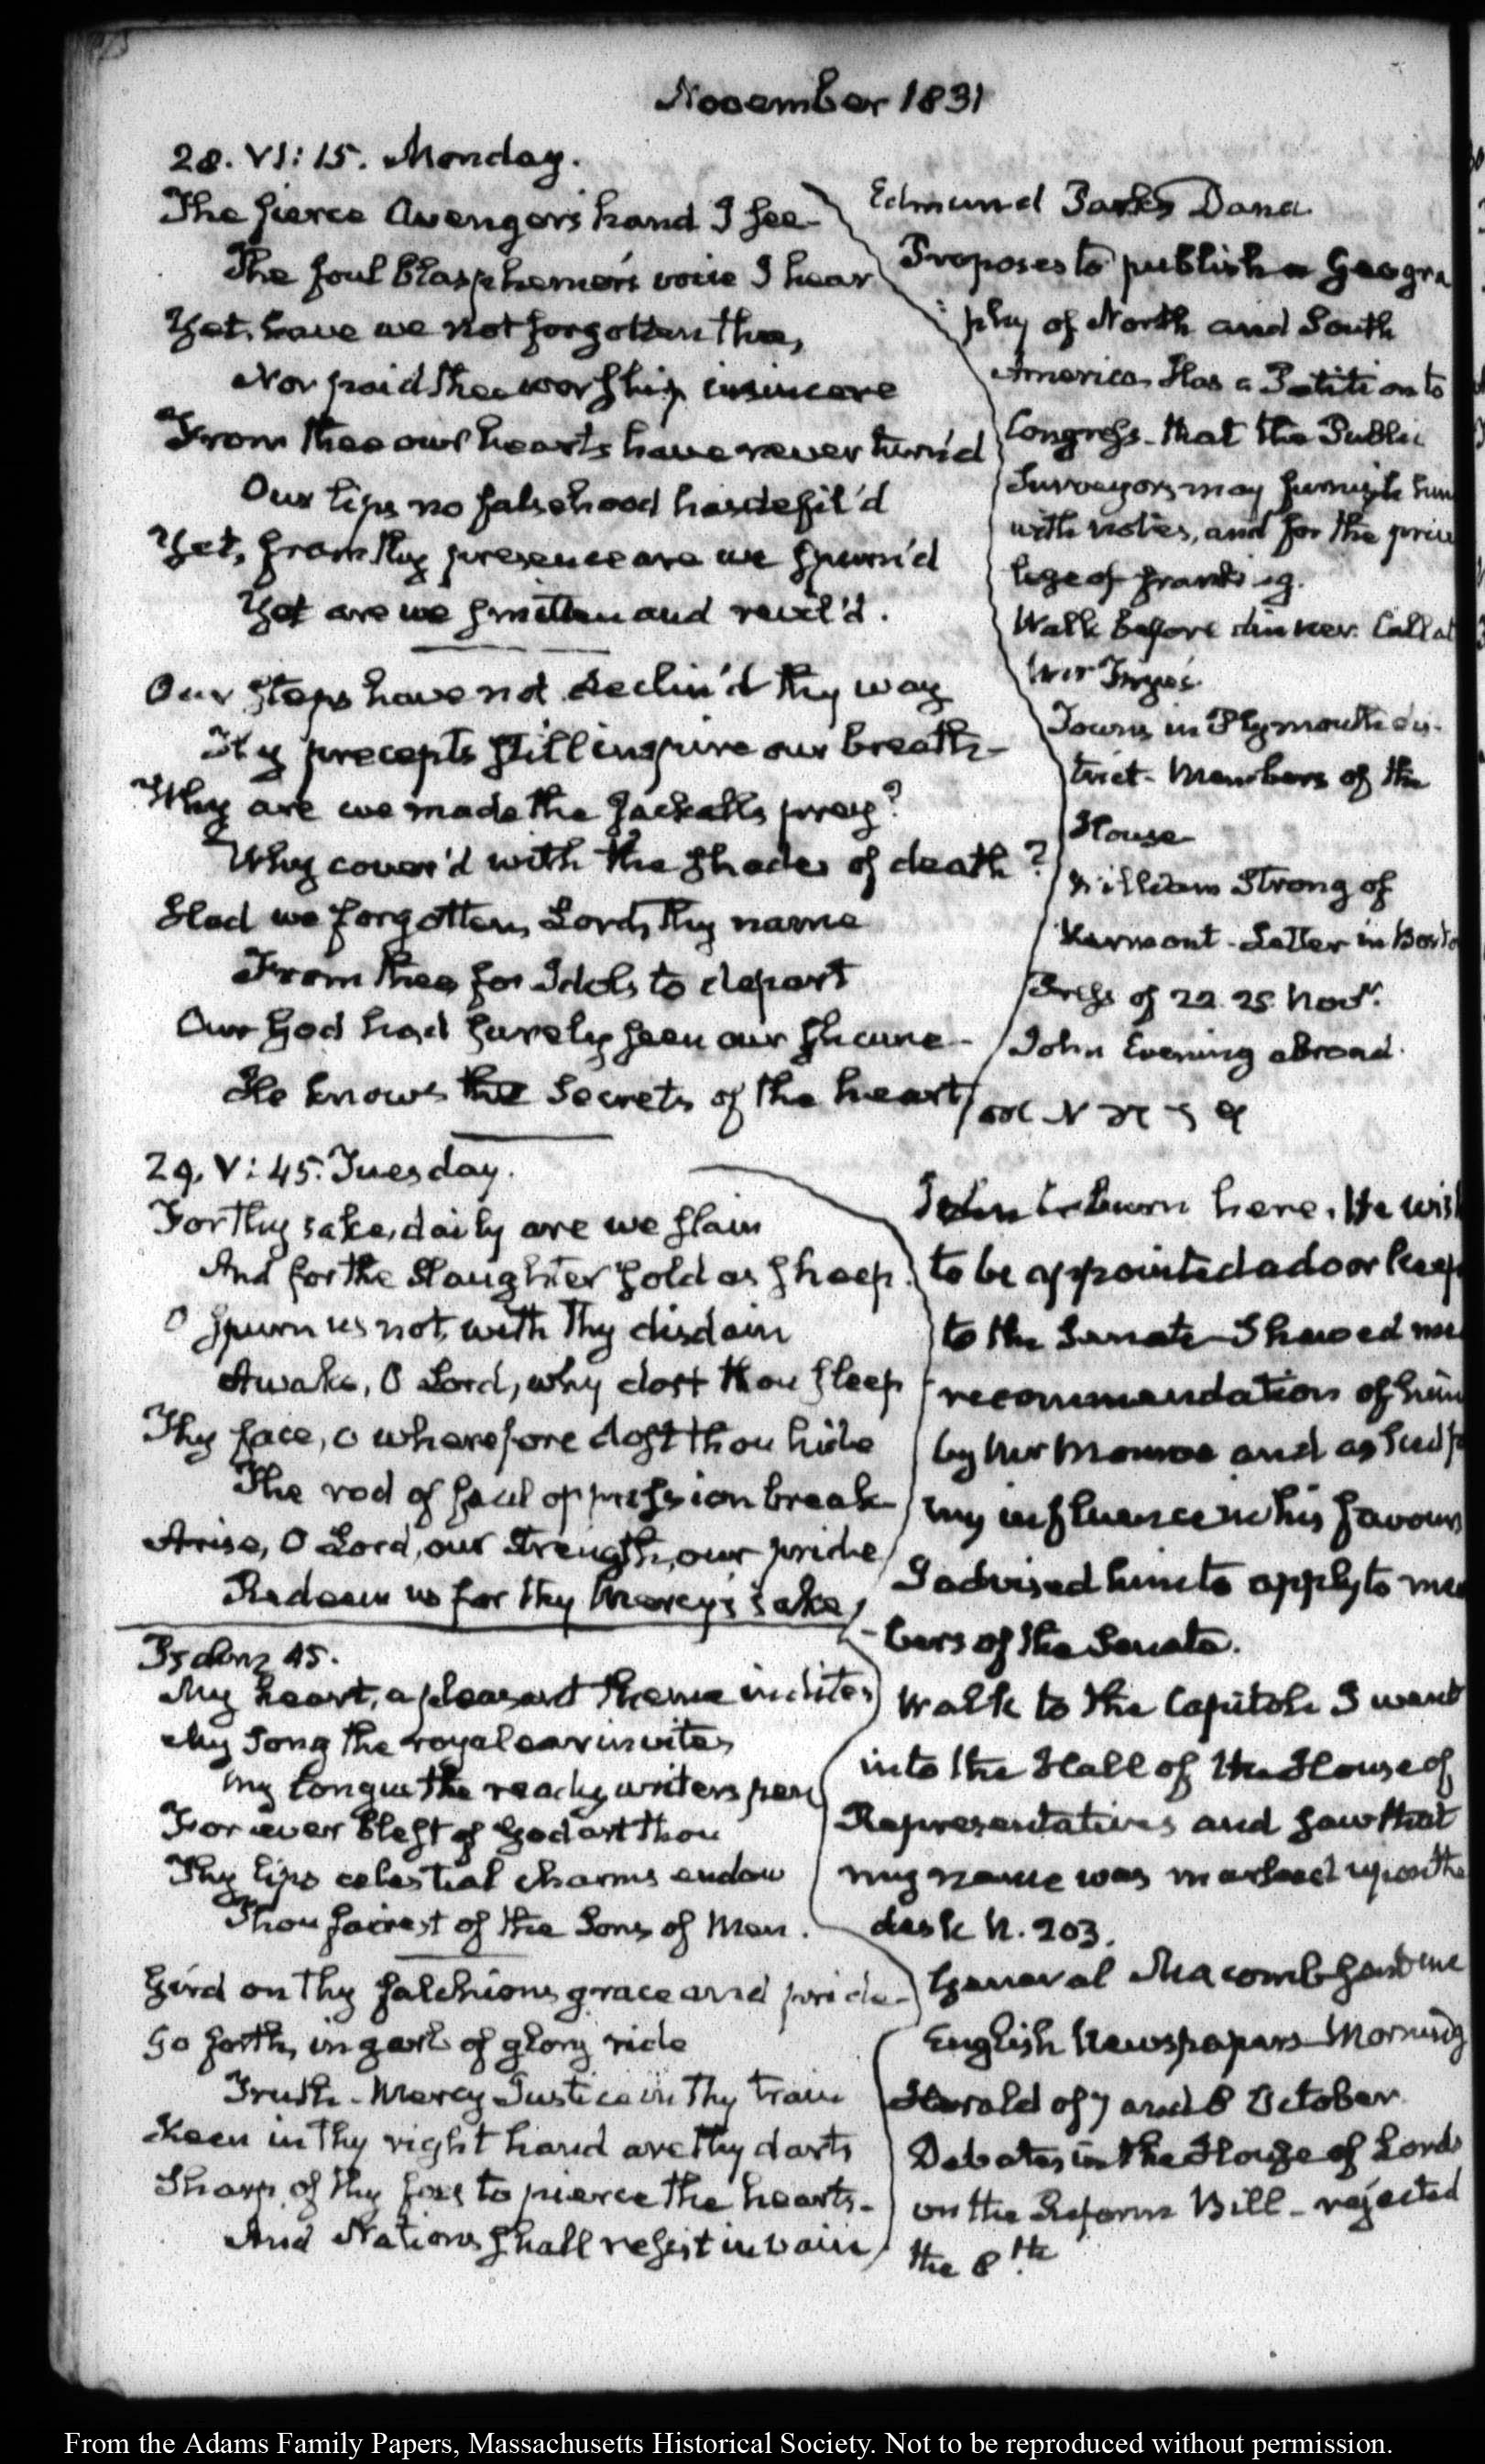 November 1831
28. VI: 15. Monday.
The fierce Avenger's hand I see
The foul blasphemer's voice I hear
Yet, have we not forgotten thee,
Nor paid thee worship insincere
From thee our hearts have never turn'd
Our lips no falsehood has defil'd
Yet, from thy presence are we spurn'd
Yet are we smitten and revil'd.
Our steps have not declin'd thy way
Thy precepts still inspire our breath
Why are we made the Jackalls prey?
Why cover'd with the shades of death?
Had we forgotten, Lord, thy name
From thee for Idols to depart
Our God had surely seen our shame
He knows the Secrets of the heart
Edmund Dana
Proposes to publish a Geogra
phy of North and South
America Has a Petition to
Congress that the Public
Surveyors may furnish him
with notes, and for the privi
lege of franking.
Walk before dinner. Call at
Mr
Towns in Plymouth dis-
trict. Members of the
House
William Strong of
Vermont. Letter in Bosto
Press of 22. 25 Novr.
John Evening abroad.
29. V: 45. Tuesday.
For thy sake, daily are we slain
And for the Slaughter sold as sheep.
O spurn us not, with thy disdain
Awake, O Lord, why dost thou sleep
Thy face, O wherefore dost thou hide
The rod of foul oppression break
Arise, O Lord, our Strength, our pride
Redeem us for thy Mercy's sake
John here. He wish
to be appointed a door keep
to the Senate Showed me
recommendation of him
by Mr Monroe and asked f
my influence in his favour
I advised him to apply to mem
bers of the Senate.
Walk to the Capitol. I went
into the Hall of the House of
Representatives and saw that
my name was marked upon the
desk N. 203.
General Macomb sent me
English Newspapers Morning
Herald of 7 and 8 October
Debates in the House of Lords
on the Reform Bill - rejected
the 8th.
Psalm 45.
My heart, a pleasant theme indites
My Song the royal ear invites
My tongue the ready writers pen
For ever blest of God art thou
Thy lips celestial charms endow
Thou fairest of the Sons of Men.
Gird on thy falchion, grace and pride
Go forth, in garb of glory ride
Truth - Mercy Justice in thy train
Keen in thy right hand are thy darts
Sharp of thy foes to pierce the hearts-
And Nations shall resist in vain
From the Adams Family Papers, Massachusetts Historical Society. Not to be reproduced without permission.